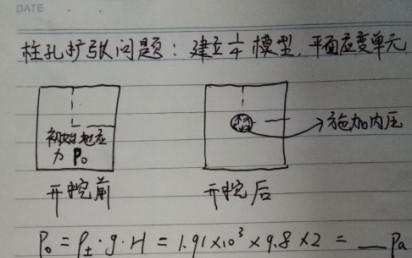 DATE
柱孔扩张问题：建立1/4模型，平面应变单元
初始地应
力 P₀
→施加内压
开挖前
开挖后
P₀ = ρ土·g·H = 1.91×10³×9.8×2 = __ Pa